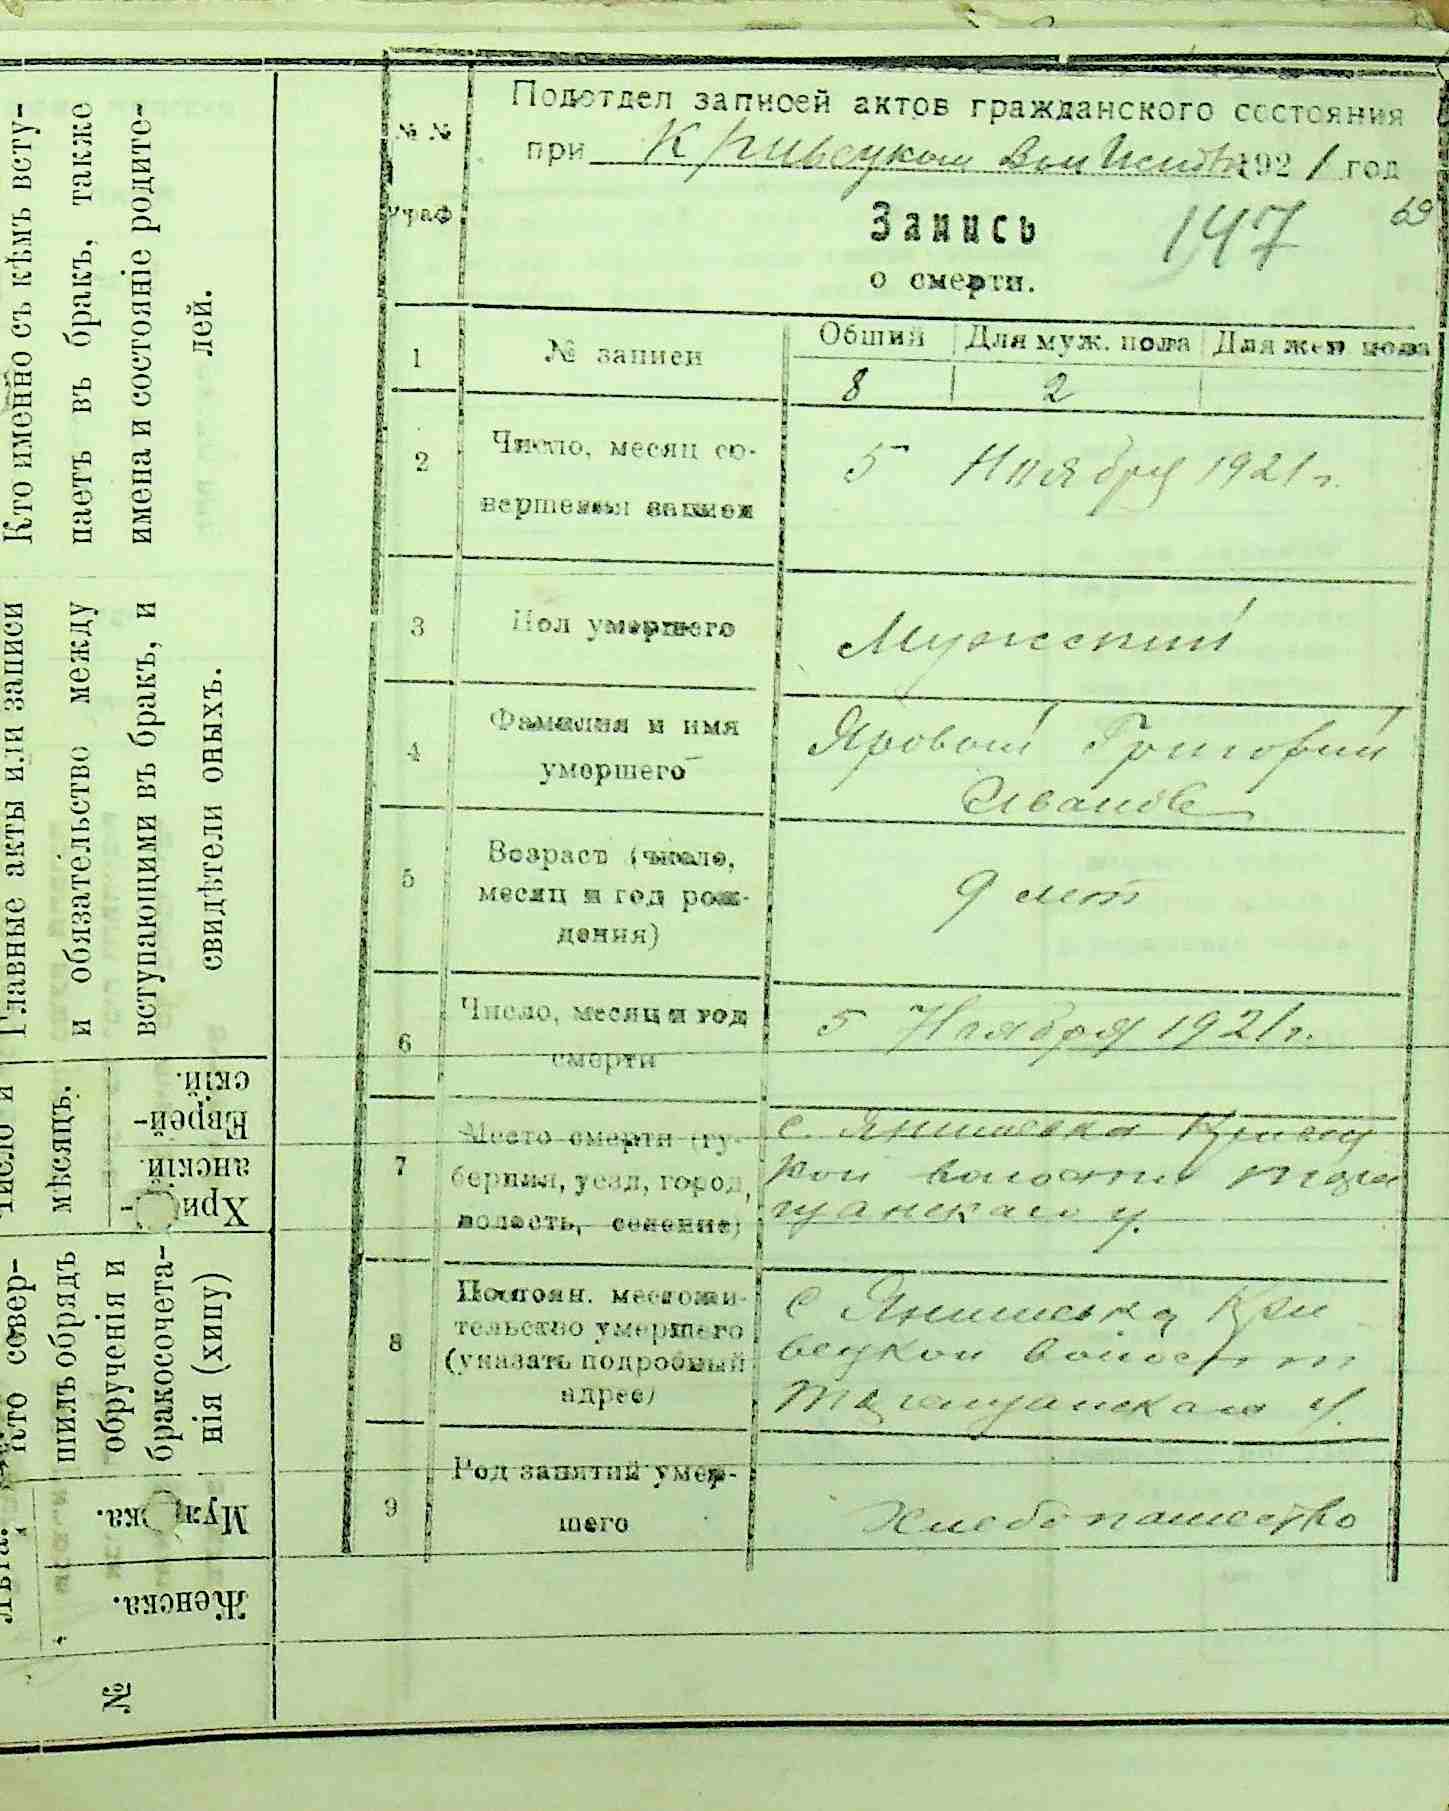 Кто именно съ кѣмъ всту-
паетъ въ бракъ, также
имена и состояніе родите-
лей.
Главные акты или записи
и обязательство между
вступающими въ бракъ, и
свидѣтели оныхъ.
Число и
мѣсяцъ.
Еврей-
скій.
Хри -
анскій.
Кто совер-
шилъ обрядъ
обрученія и
бракосочета-
нія (хипу)
Лѣта.
Му ка.
Женска.
№
№ №
граф
Подотдел записей актов гражданского состояния
при Кривецком Вол 1921 год
69
Запись 147
о смерти.
1 № записи Общий Для муж. пола Для жен. пола
8 2
2 Число, месяц со-
вершения записи
5 Ноября 1921 г.
3 Пол умершего Мужский
4 Фамилия и имя
умершего
Яровый Григорий
Иванов
5 Возраст (число,
месяц и год рож-
дения)
9 лет
6 Число, месяц и год
смерти
5 Ноября 1921 г.
7 Место смерти (гу-
берния, уезд, город,
волость, селение)
с. Янишевка Кривец
кой волости Тара
щанскаго у.
8 Постоян. местожи-
тельство умершего
(указать подробный
адрес)
с Янишевка Кри
вецкой волости
Таращанскаго у.
9 Род занятий умер-
шего
Хлебопашество